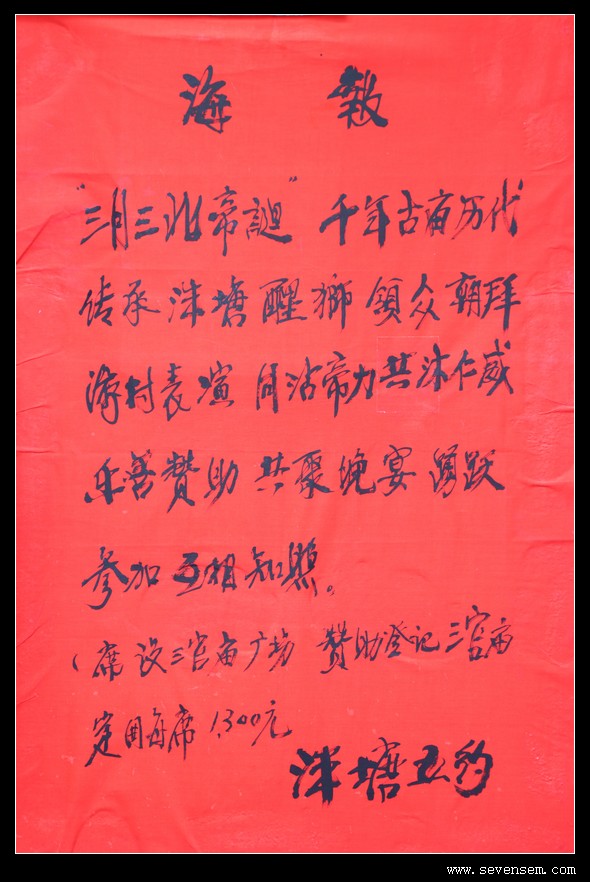 海 報
"三月三北帝誕" 千年古庙历代
传承 洙塘 醒狮 領众 朝拜
游村表演 同沾帝力 共沐仁威
乐善赞助 共聚晚宴 踴跃
参加 互相知照。
（席设三官庙广场 贊助登记三官庙
定围每席1300元
洙塘五约
www.sevensem.com